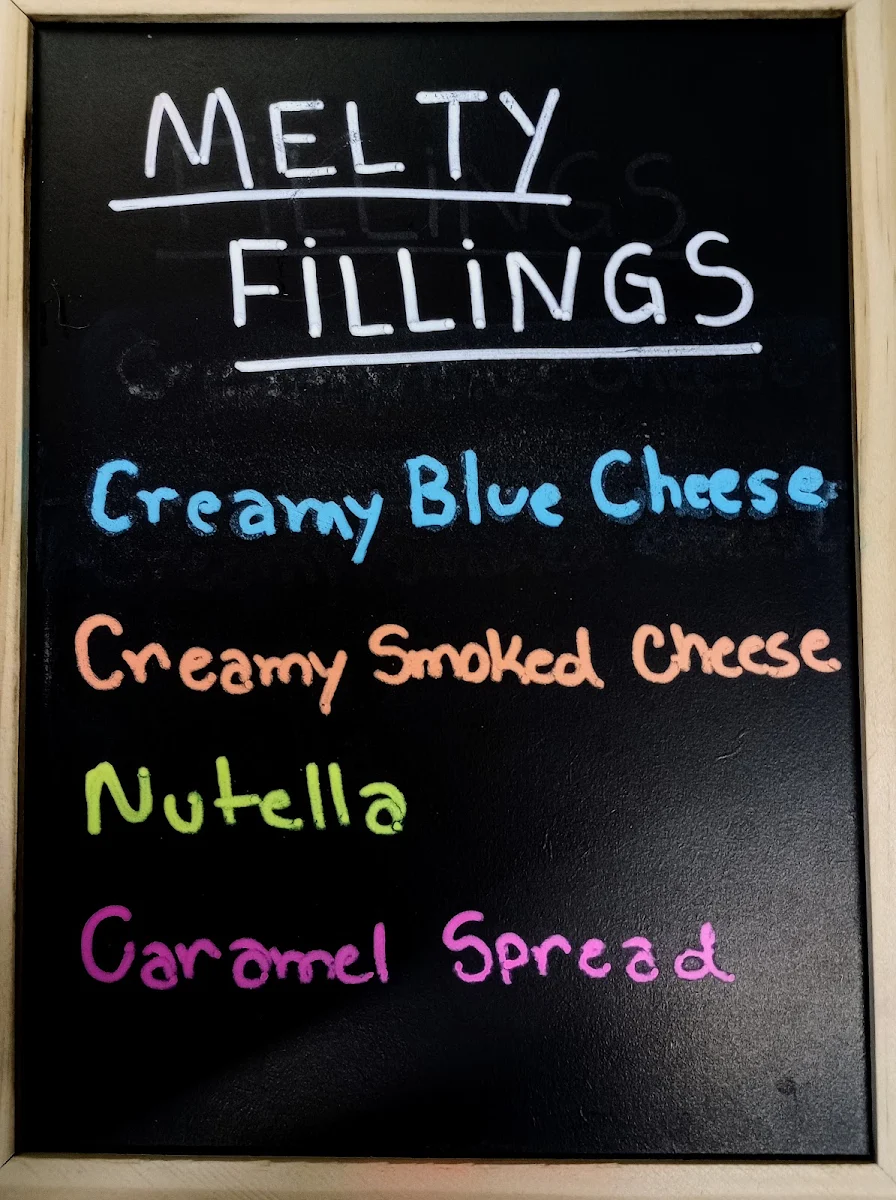 MELTY
FiLLiNGS
Creamy Blue Cheese
Creamy Smoked Cheese
Nutella
Caramel Spread